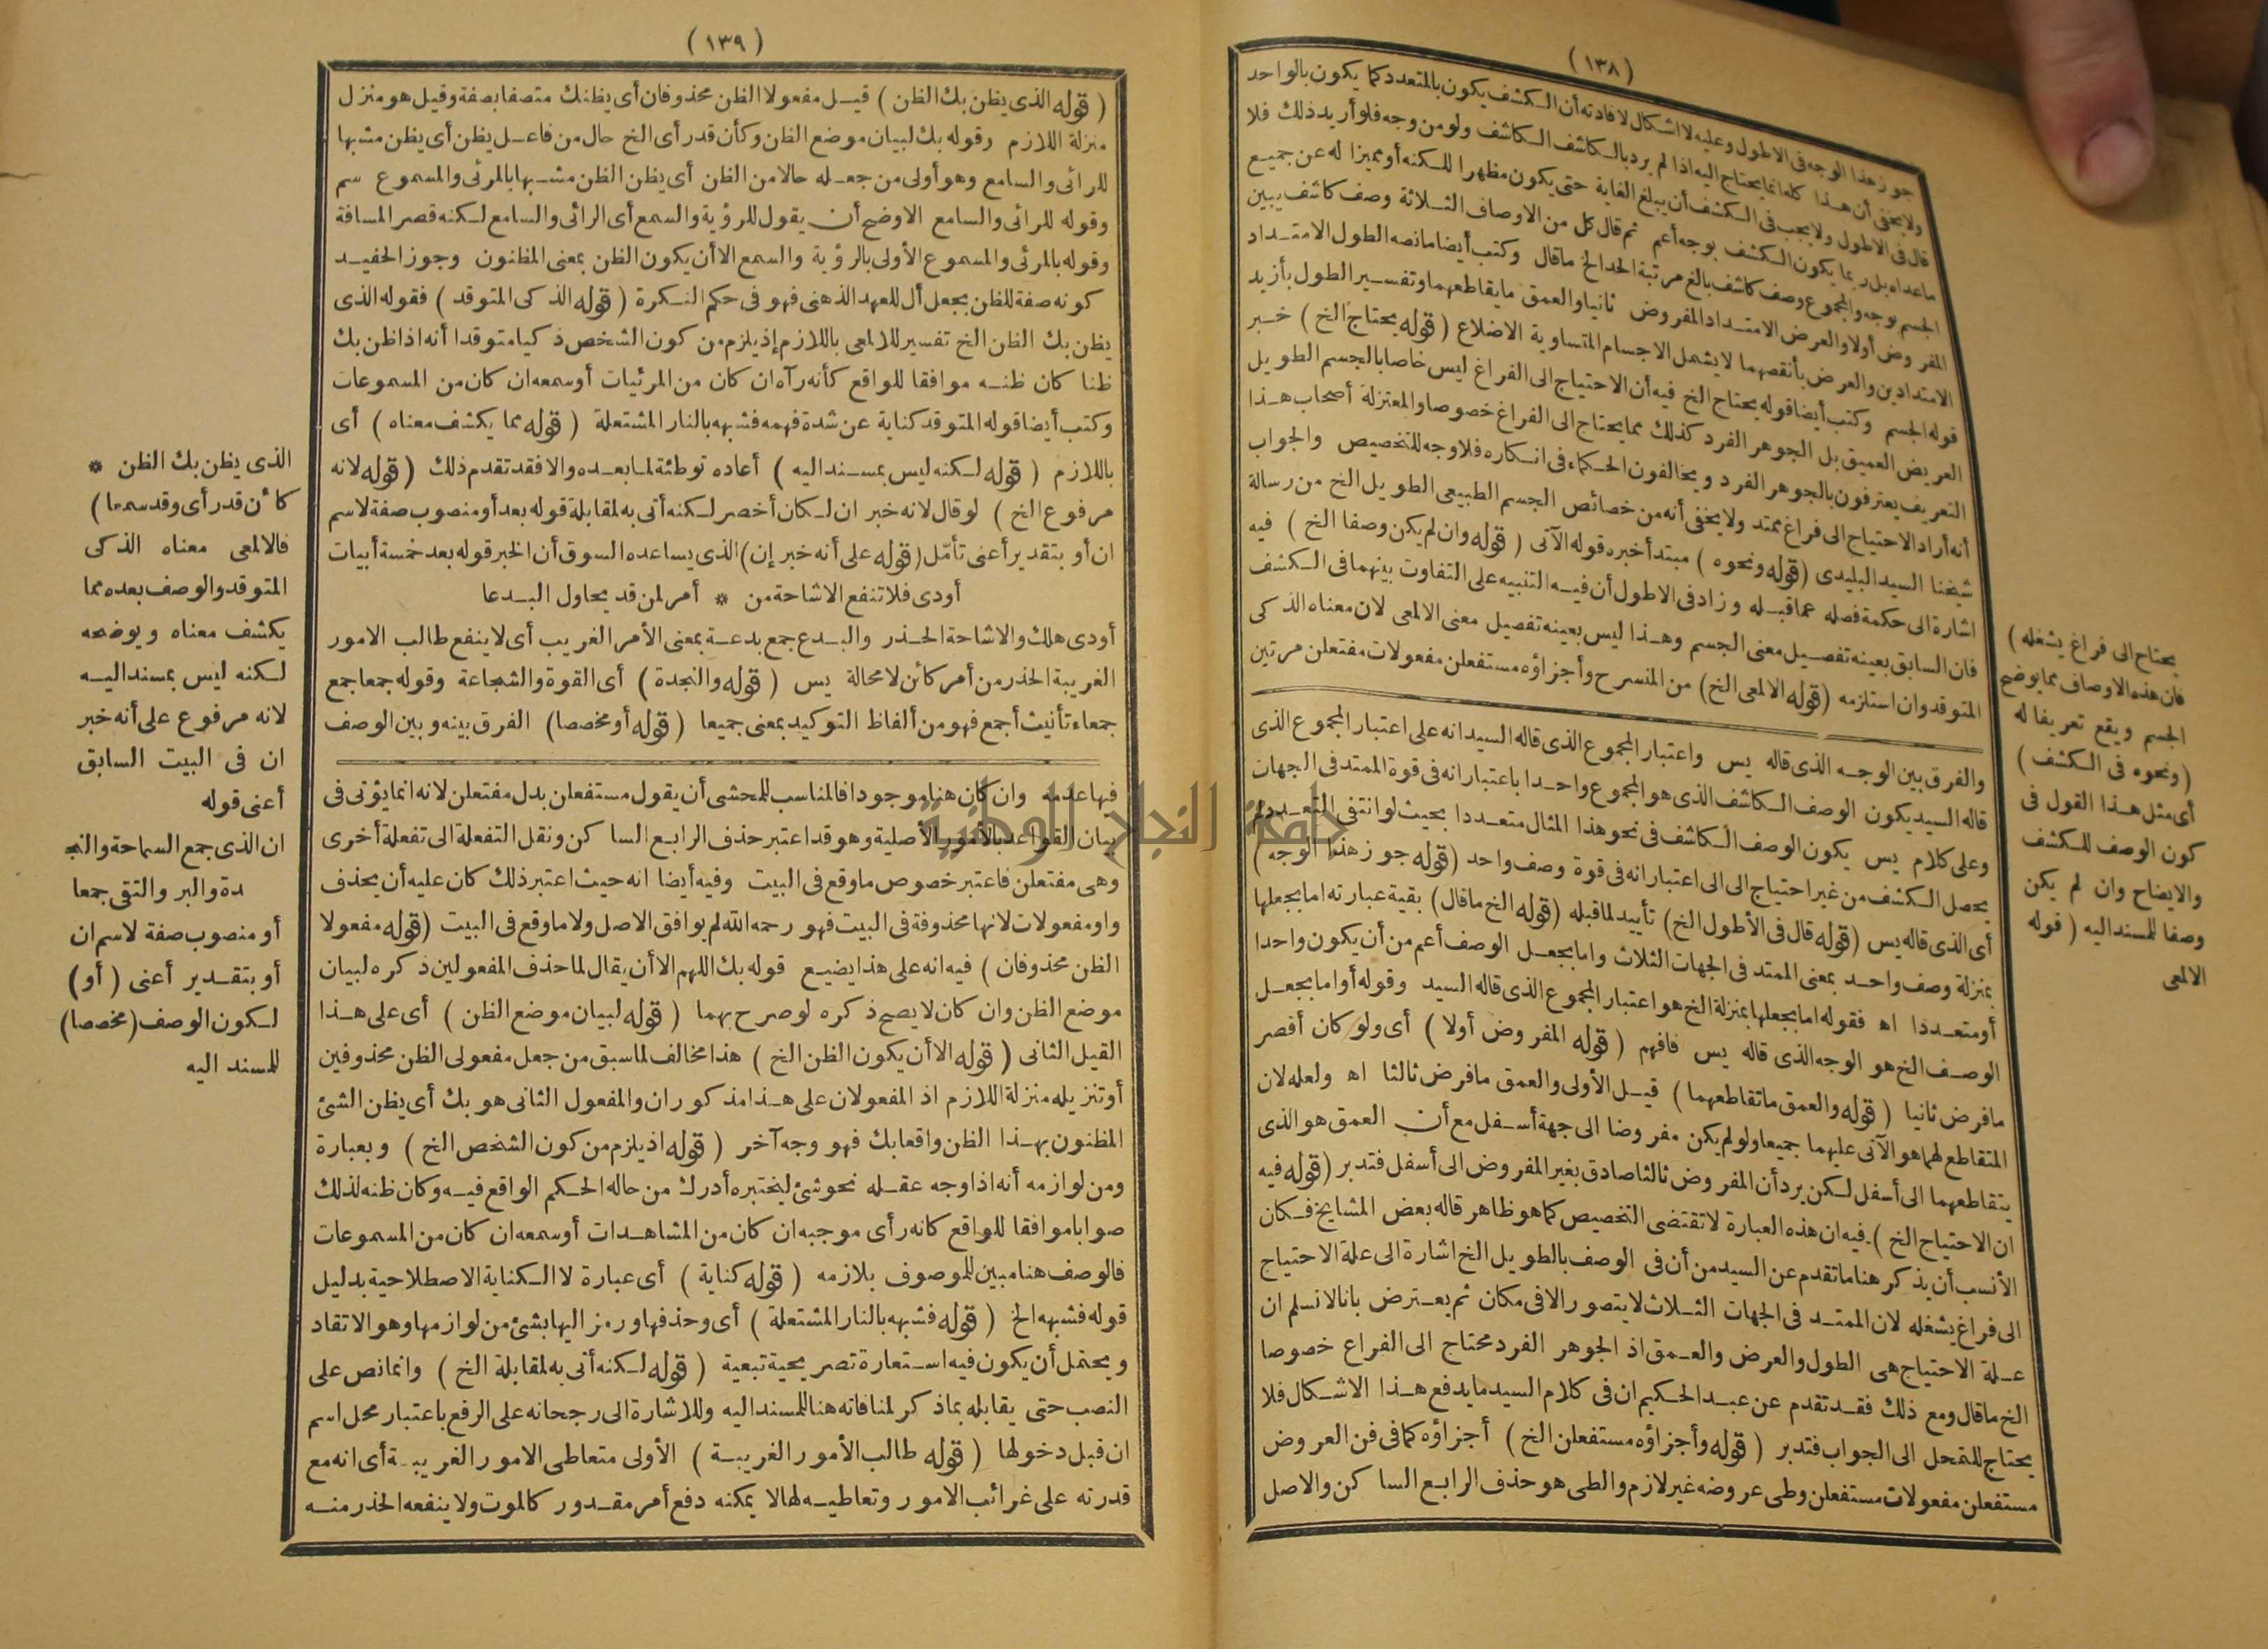 (١٣٨)
جوز هذا الوجه فى الاطول وعليه لا اشكال لافادته أن الكشف يكون بالمتعدد كما يكون بالواحد
ولا يخفى أن هذا كله انما يحتاج اليه اذا لم يرد بالكاشف الكاشف ولو من وجه فلو أريد ذلك فلا
قال فى الاطول ولا يجب فى الكشف أن يبلغ الغاية حتى يكون مظهرا للكنه أو مميزا له عن جميع
ماعداه بل ربما يكون الكشف بوجه أعم ثم قال كل من الاوصاف الثلاثة وصف كاشف يبين
الجسم بوجه والمجموع وصف كاشف بالغ مرتبة الحد الخ ماقال وكتب أيضا مانصه الطول الامتداد
المفروض أولا والعرض الامتداد المفروض ثانيا والعمق مايقاطعهما وتفسير الطول بأزيد
الامتدادين والعرض بأنقصهما لا يشمل الاجسام المتساوية الاضلاع (قوله يحتاج الخ) خبر
قوله الجسم وكتب أيضا قوله يحتاج الخ فيه أن الاحتياج الى الفراغ ليس خاصا بالجسم الطويل
العريض العميق بل الجوهر الفرد كذلك مما يحتاج الى الفراغ خصوصا والمعتزلة أصحاب هذا
التعريف يعترفون بالجوهر الفرد ويخالفون الحكماء فى انكاره فلا وجه للتخصيص والجواب
أنه أراد الاحتياج الى فراغ ممتد ولا يخفى أنه من خصائص الجسم الطبيعى الطويل الخ من رسالة
شيخنا السيد البليدى (قوله ونحوه) مبتدأ خبره قوله الآتى (قوله وان لم يكن وصفا الخ) فيه
اشارة الى حكمة فصله عما قبله وزاد فى الاطول أن فيه التنبيه على التفاوت بينهما فى الكشف
فان السابق بعينه تفصيل معنى الجسم وهذا ليس بعينه تفصيل معنى الالمعى لان معناه الذكى
المتوقد وان استلزمه (قوله الالمعى الخ) من المنسرح وأجزاؤه مستفعلن مفعولات مفتعلن مرتين
والفرق بين الوجه الذى قاله يس واعتبار المجموع الذى قاله السيد انه على اعتبار المجموع الذى
قاله السيد يكون الوصف الكاشف الذى هو المجموع واحدا باعتبار انه فى قوة الممتد فى الجهات
وعلى كلام يس يكون الوصف الكاشف فى نحو هذا المثال متعددا بحيث لو انتفى التعدد لم
يحصل الكشف من غير احتياج الى الى اعتبار انه فى قوة وصف واحد (قوله جوز هذا الوجه)
أى الذى قاله يس (قوله قال فى الأطول الخ) تأييد لما قبله (قوله الخ ماقال) بقية عبارته اما بجعلها
بمنزلة وصف واحد بمعنى الممتد فى الجهات الثلاث واما بجعل الوصف أعم من أن يكون واحدا
أو متعددا اه فقوله اما بجعلها بمنزلة الخ هو اعتبار المجموع الذى قاله السيد وقوله أو اما بجعل
الوصف الخ هو الوجه الذى قاله يس فافهم (قوله المفروض أولا) أى ولو كان أقصر
مافرض ثانيا (قوله والعمق ماتقاطعهما) قيل الأولى والعمق مافرض ثالثا اه ولعله لان
المتقاطع لهما هو الآتى عليهما جميعا ولو لم يكن مفروضا الى جهة أسفل مع أن العمق هو الذى
يتقاطعهما الى أسفل لكن يرد أن المفروض ثالثا صادق بغير المفروض الى أسفل فتدبر (قوله فيه
ان الاحتياج الخ) فيه ان هذه العبارة لا تقتضى التخصيص كما هو ظاهر قاله بعض المشايخ فكان
الأنسب أن يذكر هنا ماتقدم عن السيد من أن فى الوصف بالطويل الخ اشارة الى علة الاحتياج
الى فراغ يشغله لان الممتد فى الجهات الثلاث لا يتصور الا فى مكان ثم يعترض بانا لا نسلم ان
علة الاحتياج هى الطول والعرض والعمق اذ الجوهر الفرد محتاج الى الفراغ خصوصا
الخ ماقال ومع ذلك فقد تقدم عن عبد الحكيم ان فى كلام السيد مايدفع هذا الاشكال فلا
يحتاج للتمحل الى الجواب فتدبر (قوله وأجزاؤه مستفعلن الخ) أجزاؤه كما فى فن العروض
مستفعلن مفعولات مستفعلن وطى عروضه غير لازم والطى هو حذف الرابع الساكن والاصل
يحتاج الى فراغ يشغله)
فان هذه الاوصاف مما يوضح
الجسم ويقع تعريفا له
(ونحوه فى الكشف)
أى مثل هذا القول فى
كون الوصف للكشف
والايضاح وان لم يكن
وصفا للمسند اليه (قوله
الالمعى
(١٣٩)
(قوله الذى يظن بك الظن) قيل مفعولا الظن محذوفان أى يظنك متصفا بصفة وقيل هو منزل
منزلة اللازم وقوله بك لبيان موضع الظن وكأن قد رأى الخ حال من فاعل يظن أى يظن مشبها
للرائى والسامع وهو أولى من جعله حالا من الظن أى يظن الظن مشبها بالمرئى والمسموع سم
وقوله للرائى والسامع الاوضح أن يقول للرؤية والسمع أى الرائى والسامع لكنه قصر المسافة
وقوله بالمرئى والمسموع الأولى بالرؤية والسمع الا أن يكون الظن بمعنى المظنون وجوز الحفيد
كونه صفة للظن بجعل أل للعهد الذهنى فهو فى حكم النكرة (قوله الذكى المتوقد) فقوله الذى
يظن بك الظن الخ تفسير للالمعى باللازم إذ يلزم من كون الشخص ذكيا متوقدا أنه اذا ظن بك
ظنا كان ظنه موافقا للواقع كأنه رآه ان كان من المرئيات أو سمعه ان كان من المسموعات
وكتب أيضا قوله المتوقد كناية عن شدة فهمه فشبهه بالنار المشتعلة (قوله مما يكشف معناه) أى
باللازم (قوله لكنه ليس بمسند اليه) أعاده توطئة لما بعده والا فقد تقدم ذلك (قوله لانه
مرفوع الخ) لو قال لانه خبر ان لكان أخصر لكنه أتى به لمقابلة قوله بعد أو منصوب صفة لاسم
ان أو بتقدير أعنى تأمّل (قوله على أنه خبر إن) الذى يساعده السوق أن الخبر قوله بعد خمسة أبيات
أودى فلا تنفع الاشاحة من * أمر لمن قد يحاول البدعا
أودى هلك والاشاحة الحذر والبدع جمع بدعة بمعنى الأمر الغريب أى لا ينفع طالب الامور
الغريبة الحذر من أمر كائن لا محالة يس (قوله والنجدة) أى القوة والشجاعة وقوله جمعا جمع
جمعاء تأنيث أجمع فهو من ألفاظ التوكيد بمعنى جميعا (قوله أو مخصصا) الفرق بينه وبين الوصف
فيها عدمه وان كان هنا موجودا فالمناسب للمحشى أن يقول مستفعلن بدل مفتعلن لانه انما يؤتى فى
بيان القواعد بالامور الأصلية وهو قد اعتبر حذف الرابع الساكن ونقل التفعلة الى تفعلة أخرى
وهى مفتعلن فاعتبر خصوص ماوقع فى البيت وفيه أيضا انه حيث اعتبر ذلك كان عليه أن يحذف
واو مفعولات لانها محذوفة فى البيت فهو رحمه الله لم يوافق الاصل ولا ماوقع فى البيت (قوله مفعولا
الظن محذوفان) فيه انه على هذا يضيع قوله بك اللهم الا أن يقال لما حذف المفعولين ذكره لبيان
موضع الظن وان كان لا يصح ذكره لو صرح بهما (قوله لبيان موضع الظن) أى على هذا
القيل الثانى (قوله الا أن يكون الظن الخ) هذا مخالف لما سبق من جعل مفعولى الظن محذوفين
أو تنزيله منزلة اللازم اذ المفعولان على هذا مذكوران والمفعول الثانى هو بك أى يظن الشئ
المظنون بهذا الظن واقعا بك فهو وجه آخر (قوله اذ يلزم من كون الشخص الخ) وبعبارة
ومن لوازمه أنه اذا وجه عقله نحو شئ ليختبره أدرك من حاله الحكم الواقع فيه وكان ظنه لذلك
صوابا موافقا للواقع كانه رأى موجبه ان كان من المشاهدات أو سمعه ان كان من المسموعات
فالوصف هنا مبين للموصوف بلازمه (قوله كناية) أى عبارة لا الكناية الاصطلاحية بدليل
قوله فشبهه الخ (قوله فشبهه بالنار المشتعلة) أى وحذفها ورمز اليها بشئ من لوازمها وهو الاتقاد
ويحتمل أن يكون فيه استعارة تصريحية تبعية (قوله لكنه أتى به لمقابلة الخ) وانما نص على
النصب حتى يقابله بما ذكر لمنافاته هنا للمسند اليه وللاشارة الى رجحانه على الرفع باعتبار محل اسم
ان قبل دخولها (قوله طالب الأمور الغريبة) الأولى متعاطى الامور الغريبة أى انه مع
قدرته على غرائب الامور وتعاطيه لها لا يمكنه دفع أمر مقدور كالموت ولا ينفعه الحذر منه
الذى يظن بك الظن *
كأن قد رأى وقد سمعا)
فالالمعى معناه الذكى
المتوقد والوصف بعده مما
يكشف معناه ويوضحه
لكنه ليس بمسند اليه
لانه مرفوع على أنه خبر
ان فى البيت السابق
أعنى قوله
ان الذى جمع السماحة والنج
دة والبر والتقى جمعا
أو منصوب صفة لاسم ان
أو بتقدير أعنى (أو)
لكون الوصف (مخصصا)
للمسند اليه
جامعة النجاح الوطنية